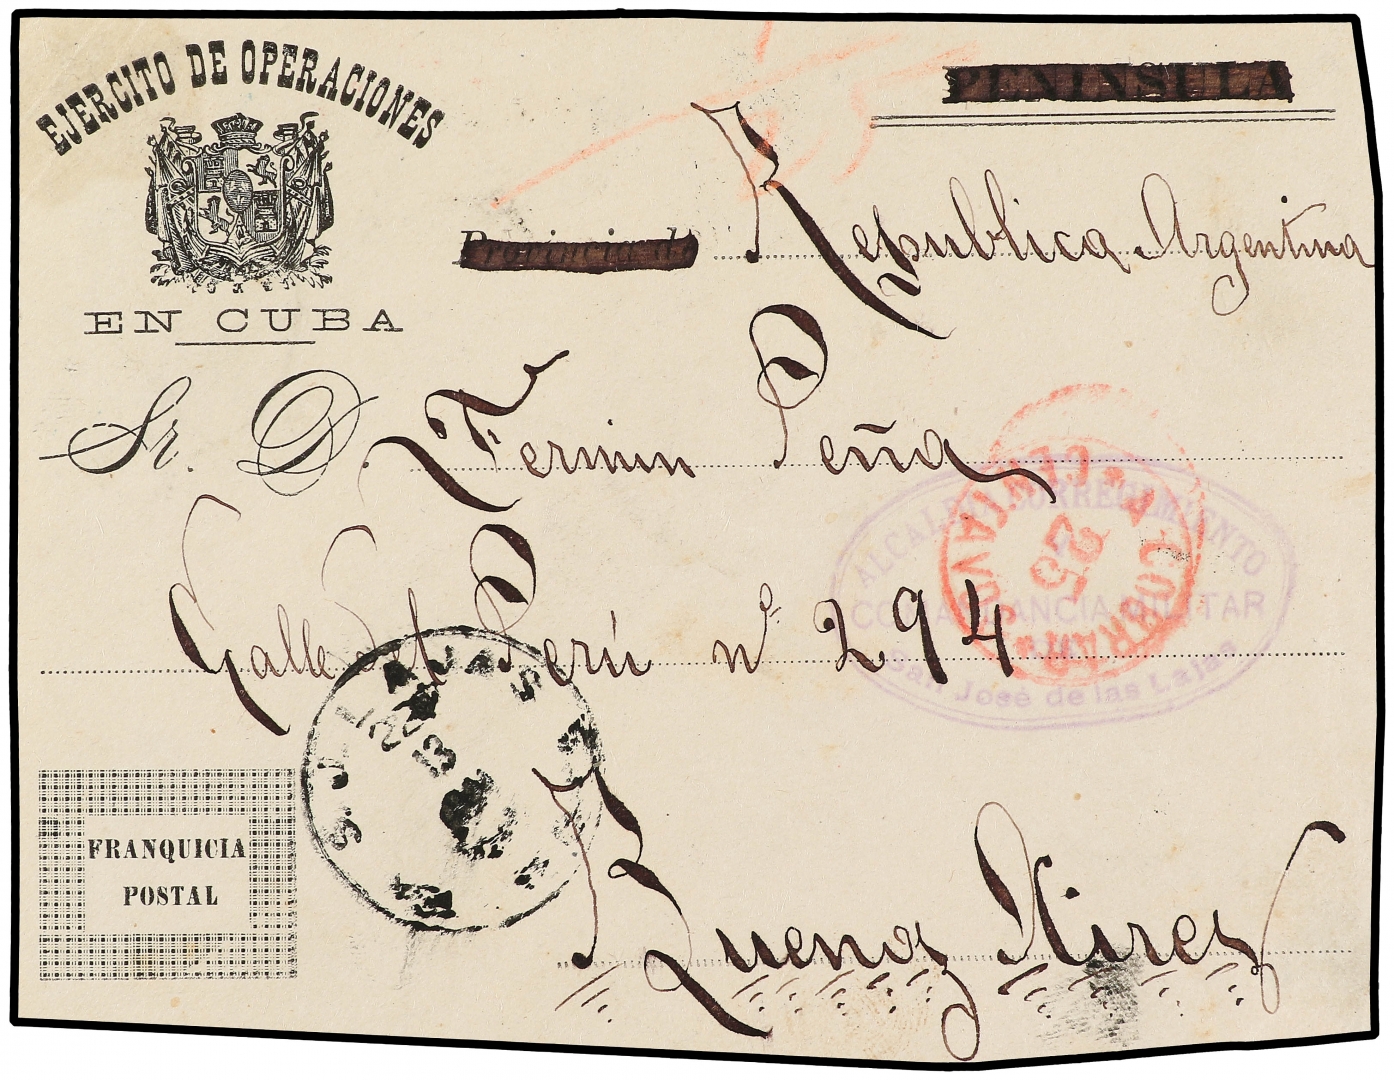 EJERCITO DE OPERACIONES
EN CUBA
PENINSULA
Republica Argentina
Sr. D. Fermin Peña
Calle del Perú nº 294
Buenos Aires
FRANQUICIA
POSTAL
ALCALDIA CORREGIMIENTO
COMANDANCIA MILITAR
San José de las Lajas
CERTIFICADO
25
S. J. LAJAS